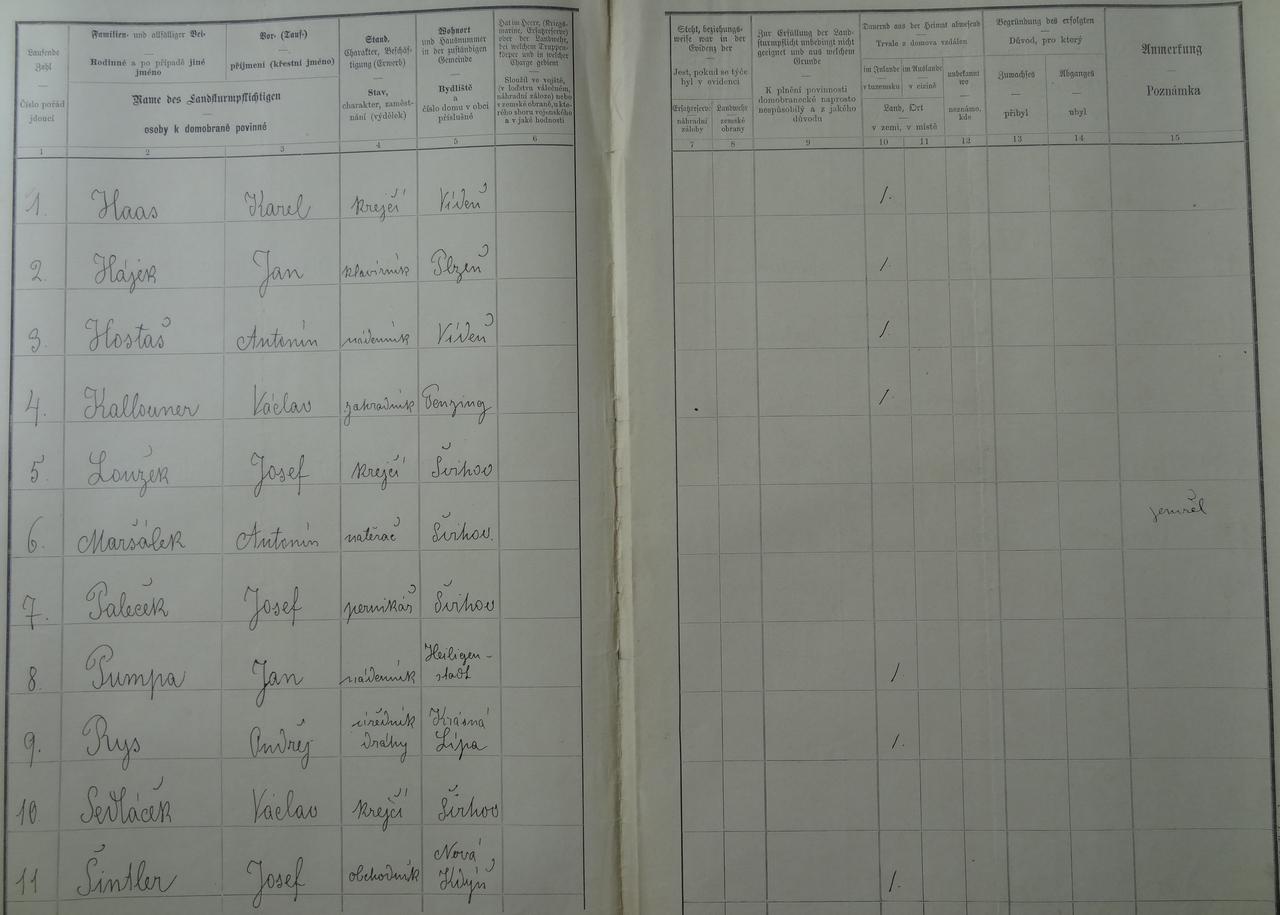 Laufende Zahl
—
Číslo pořád jdoucí
Familien- und allfälliger Bei-
—
Rodinné a po případě jiné jméno
Vor- (Tauf-)
—
příjmení (křestní jméno)
Name des Landsturmpflichtigen
—
osoby k domobraně povinné
Stand, Charakter, Beschäf-
tigung (Erwerb)
—
Stav,
charakter, zaměst-
nání (výdělek)
Wohnort
und Hausnummer
in der zuständigen
Gemeinde
—
Bydliště
a
číslo domu v obci
příslušné
Hat im Heere, (Kriegs-
marine, Ersatzreserve)
oder der Landwehr,
bei welchem Truppen-
körper und in welcher
Charge gedient
—
Sloužil ve vojště,
(v loďstvu válečném,
náhradní záloze) nebo
v zemské obraně, u kte-
rého sboru vojenského
a v jaké hodnosti
Steht, beziehungs-
weise war in der
Evidenz der
—
Jest, pokud se týče
byl v evidenci
Ersatzreserve
—
náhradní
zálohy
Landwehr
—
zemské
obrany
Zur Erfüllung der Land-
sturmpflicht unbedingt nicht
geeignet und aus welchem
Grunde
—
K plnění povinnosti
domobranecké naprosto
nespůsobilý a z jakého
důvodu
Dauernd aus der Heimat abwesend
—
Trvale z domova vzdálen
im Inlande
—
v tuzemsku
im Auslande
—
v cizině
Land, Ort
—
v zemi, v místě
unbekannt
wo
—
neznámo,
kde
Begründung des erfolgten
—
Důvod, pro který
Zuwachses
—
přibyl
Abganges
—
ubyl
Anmerkung
—
Poznámka
1 2 3 4 5 6 7 8 9 10 11 12 13 14 15
1. Haas Karel krejčí Vídeň /.
2. Hájek Jan klavírník Plzeň /.
3. Hostaš Antonín nádenník Vídeň /.
4. Kallouner Václav zahradník Penzing /.
5. Loužek Josef krejčí Švihov
6. Maršálek Antonín natěrač Švihov. zemřel
7. Paleček Josef pernikář Švihov
8. Pumpa Jan nádenník Heiligen-
stadt /.
9. Rys Ondřej úředník
dráhy Krásná
Lípa /.
10. Sedláček Václav krejčí Švihov
11 Šintler Josef obchodník Nová
Kdyň /.